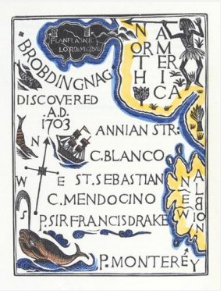 BROBDINGNAG
NORTH
AMERICA
DISCOVERED
A.D.
1703
ANNIAN STR:
C. BLANCO
N
E
ST. SEBASTIAN
C. MENDOCINO
NEW
ALBION
P. SIR FRANCIS DRAKE
P. MONTEREY